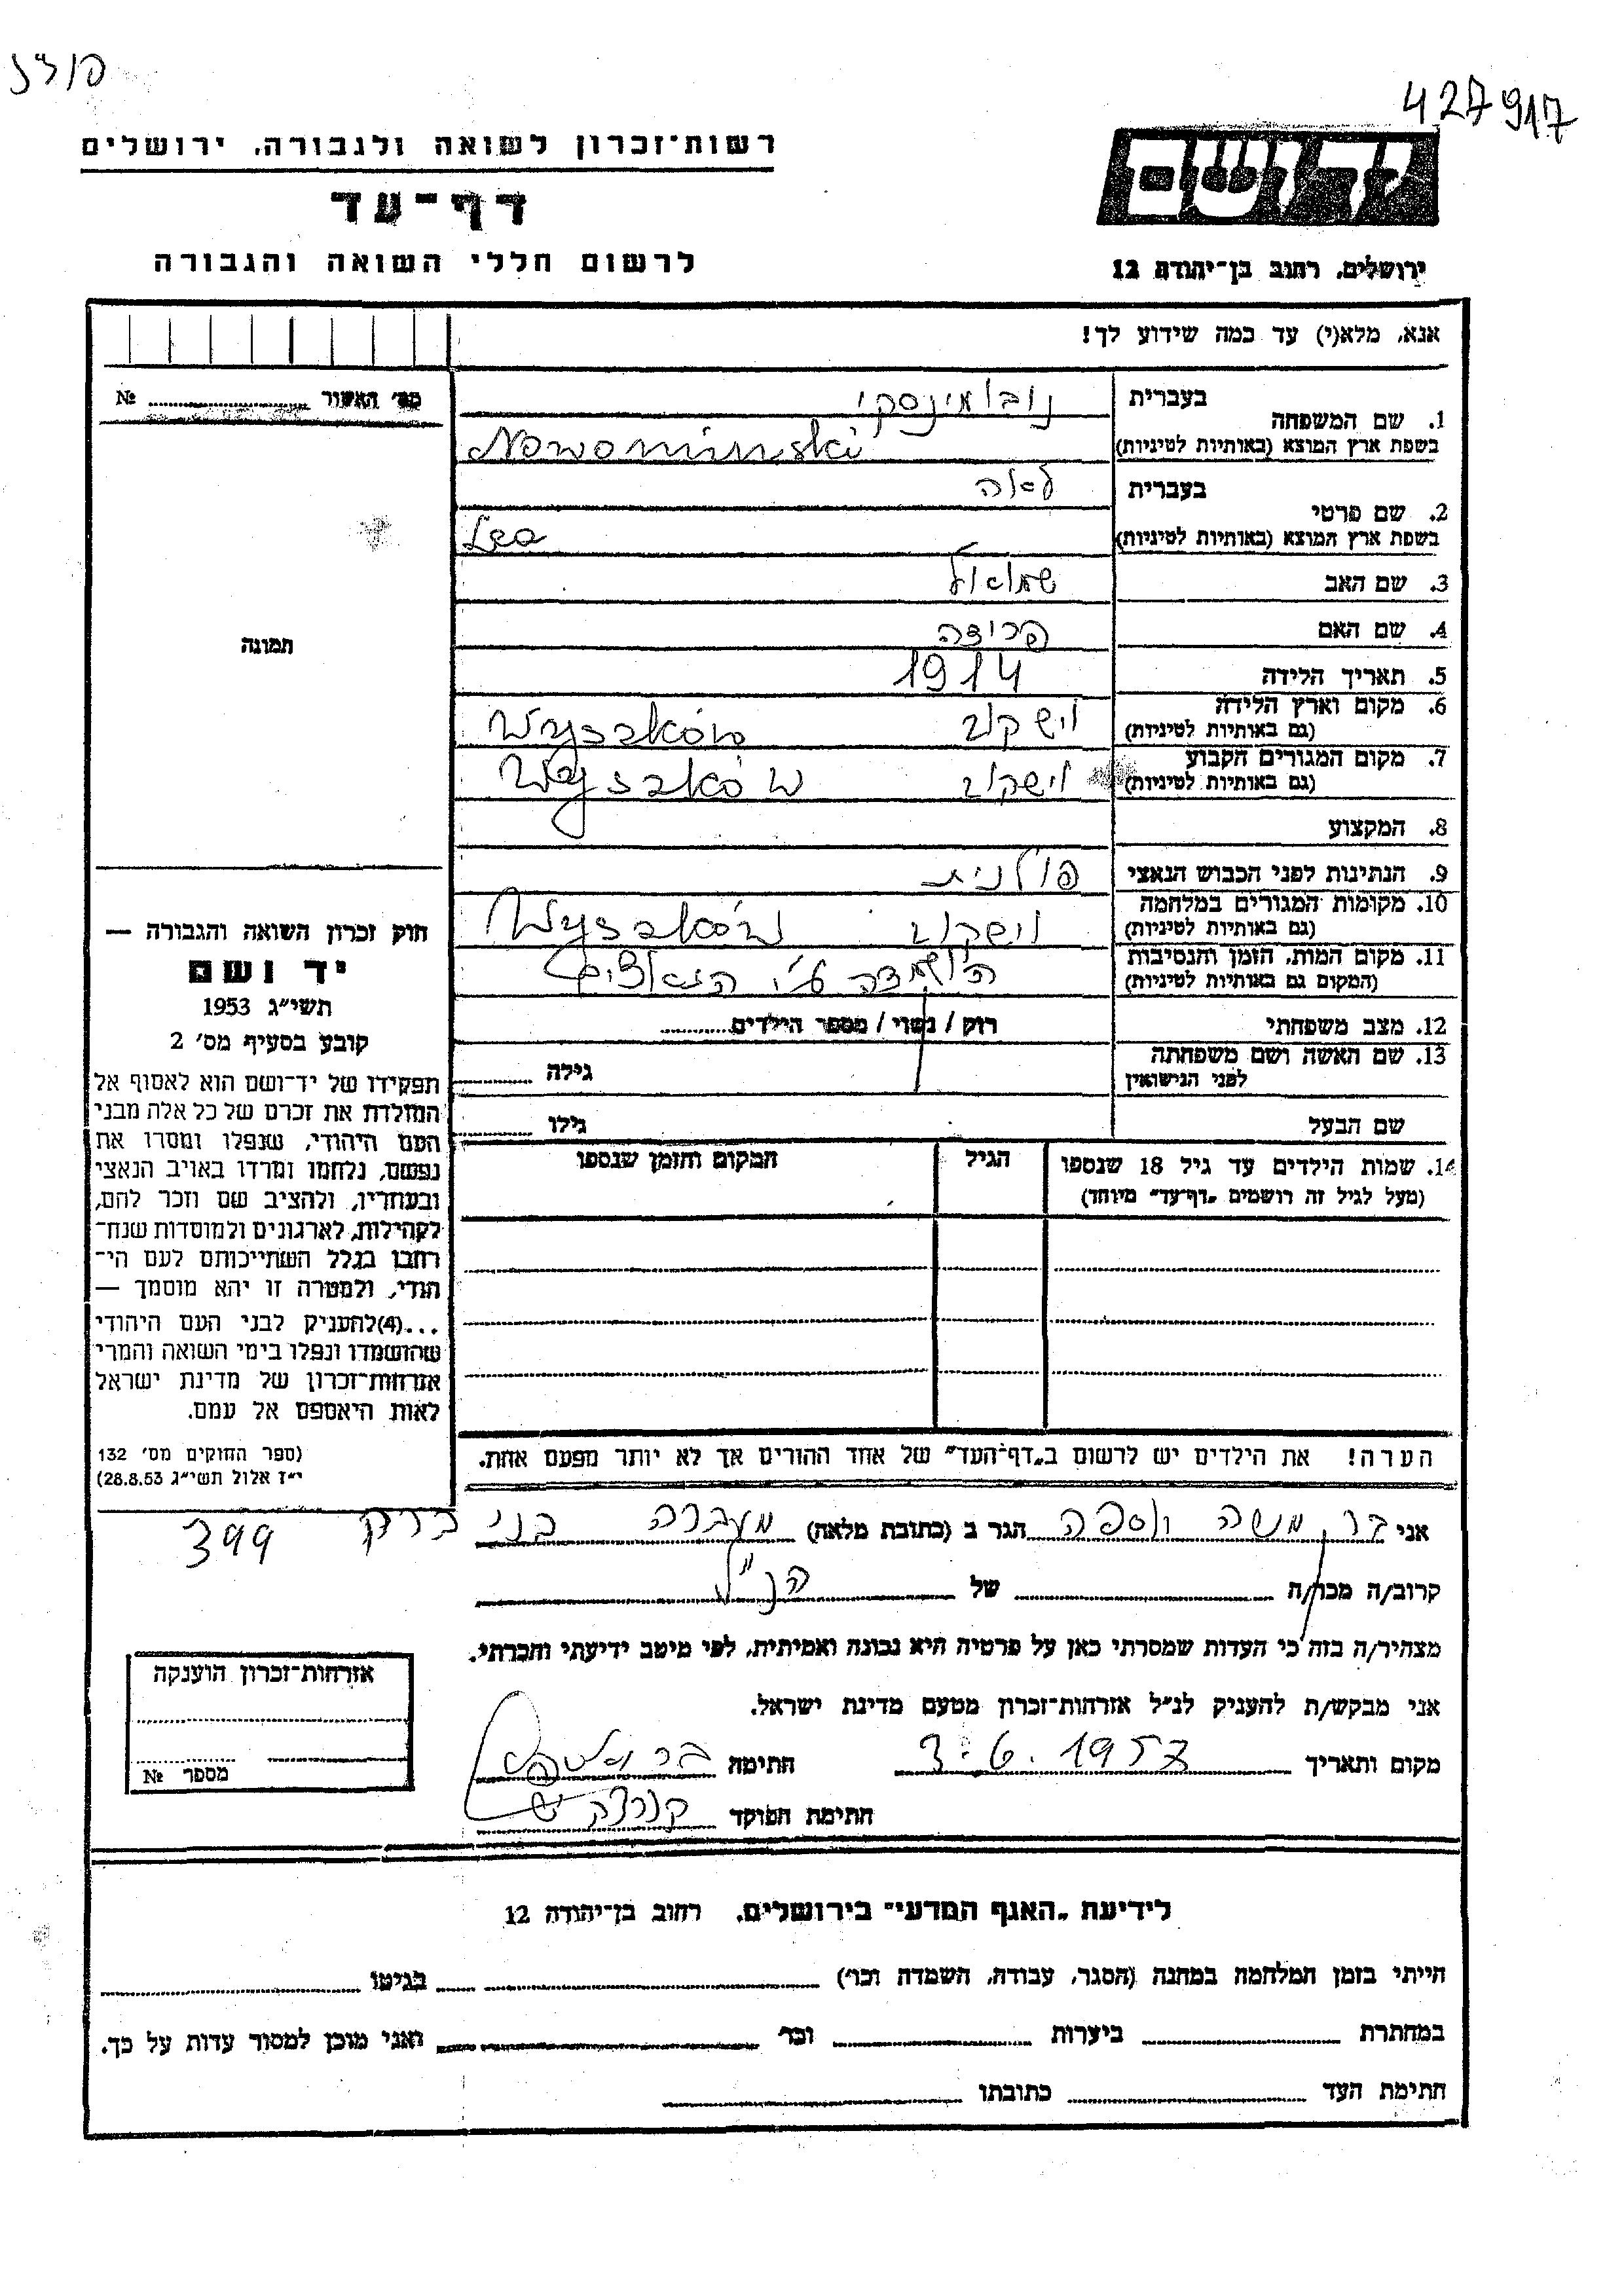 427917
רשות־זכרון לשואה ולגבורה, ירושלים
יד ושם
דף־עד
לרשום חללי השואה והגבורה
ירושלים, רחוב בן־יהודה 12
אנא, מלא(י) עד כמה שידוע לך!
מס׳ האשור № ..........
1. שם המשפחה בעברית נובומינסקי
בשפת ארץ המוצא (באותיות לטיניות) Nowominski
2. שם פרטי בעברית לאה
בשפת ארץ המוצא (באותיות לטיניות) Lea
3. שם האב שמואל
4. שם האם
תמונה
5. תאריך הלידה 1914
6. מקום וארץ הלידה וישקוב Wyszków
(גם באותיות לטיניות)
7. מקום המגורים הקבוע וישקוב Wyszków
(גם באותיות לטיניות)
8. המקצוע
9. הנתינות לפני הכבוש הנאצי פולנית
10. מקומות המגורים במלחמה וישקוב Wyszków
(גם באותיות לטיניות)
11. מקום המות, הזמן והנסיבות הושמדה ע״י הנאצים
(המקום גם באותיות לטיניות)
12. מצב משפחתי רוק / נשוי / מספר הילדים..........
13. שם האשה ושם משפחתה גילה ..........
לפני הנישואין
שם הבעל גילו ..........
14. שמות הילדים עד גיל 18 שנספו הגיל המקום והזמן שנספו
(מעל לגיל זה רושמים „דף־עד״ מיוחד)
חוק זכרון השואה והגבורה —
יד ושם
תשי״ג 1953
קובע בסעיף מס׳ 2
תפקידו של יד־ושם הוא לאסוף אל
המולדת את זכרם של כל אלה מבני
העם היהודי, שנפלו ומסרו את
נפשם, נלחמו ומרדו באויב הנאצי
ובעוזריו, ולהציב שם וזכר להם,
לקהילות, לארגונים ולמוסדות שנח־
רחבו בגלל השתייכותם לעם הי־
הודי, ולמטרה זו יהא מוסמך —
...(4)להעניק לבני העם היהודי
שהושמדו ונפלו בימי השואה והמרי
אזרחות־זכרון של מדינת ישראל
לאות היאספם אל עמם.
(ספר החוקים מס׳ 132
י״ז אלול תשי״ג 28.8.53)
הערה! את הילדים יש לרשום ב„דף־העד״ של אחד ההורים אך לא יותר מפעם אחת.
אני בר משה הגר ב (כתובת מלאה) מעברה בני ברק
399
קרוב/ה מכר/ה .......... של הנ״ל
מצהיר/ה בזה כי העדות שמסרתי כאן על פרטיה היא נכונה ואמיתית, לפי מיטב ידיעתי והכרתי.
אני מבקש/ת להעניק לנ״ל אזרחות־זכרון מטעם מדינת ישראל.
מקום ותאריך 3.6.1957 חתימה
חתימת הפוקד
אזרחות־זכרון הוענקה
מספר №
לידיעת „האגף המדעי״ בירושלים, רחוב בן־יהודה 12
הייתי בזמן המלחמה במחנה (הסגר, עבודה, השמדה וכו׳) .......... בגיטו ..........
במחתרת .......... ביערות .......... וכו׳ .......... ואני מוכן למסור עדות על כך.
חתימת העד .......... כתובתו ..........